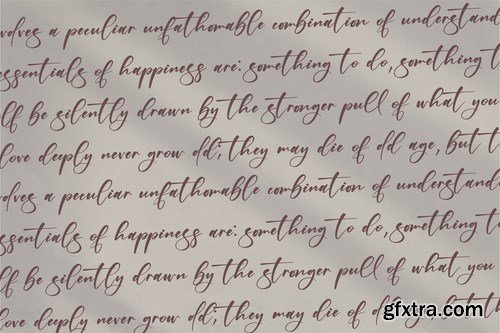 volves a peculiar unfathomable combination of understand
essentials of happiness are: something to do, something t
lf be silently drawn by the stronger pull of what you
love deeply never grow old; they may die of old age, but t
volves a peculiar unfathomable combination of understand
ssentials of happiness are: something to do, something to
lf be silently drawn by the stronger pull of what you
love deeply never grow old; they may die of old age, but t
gfxtra.com